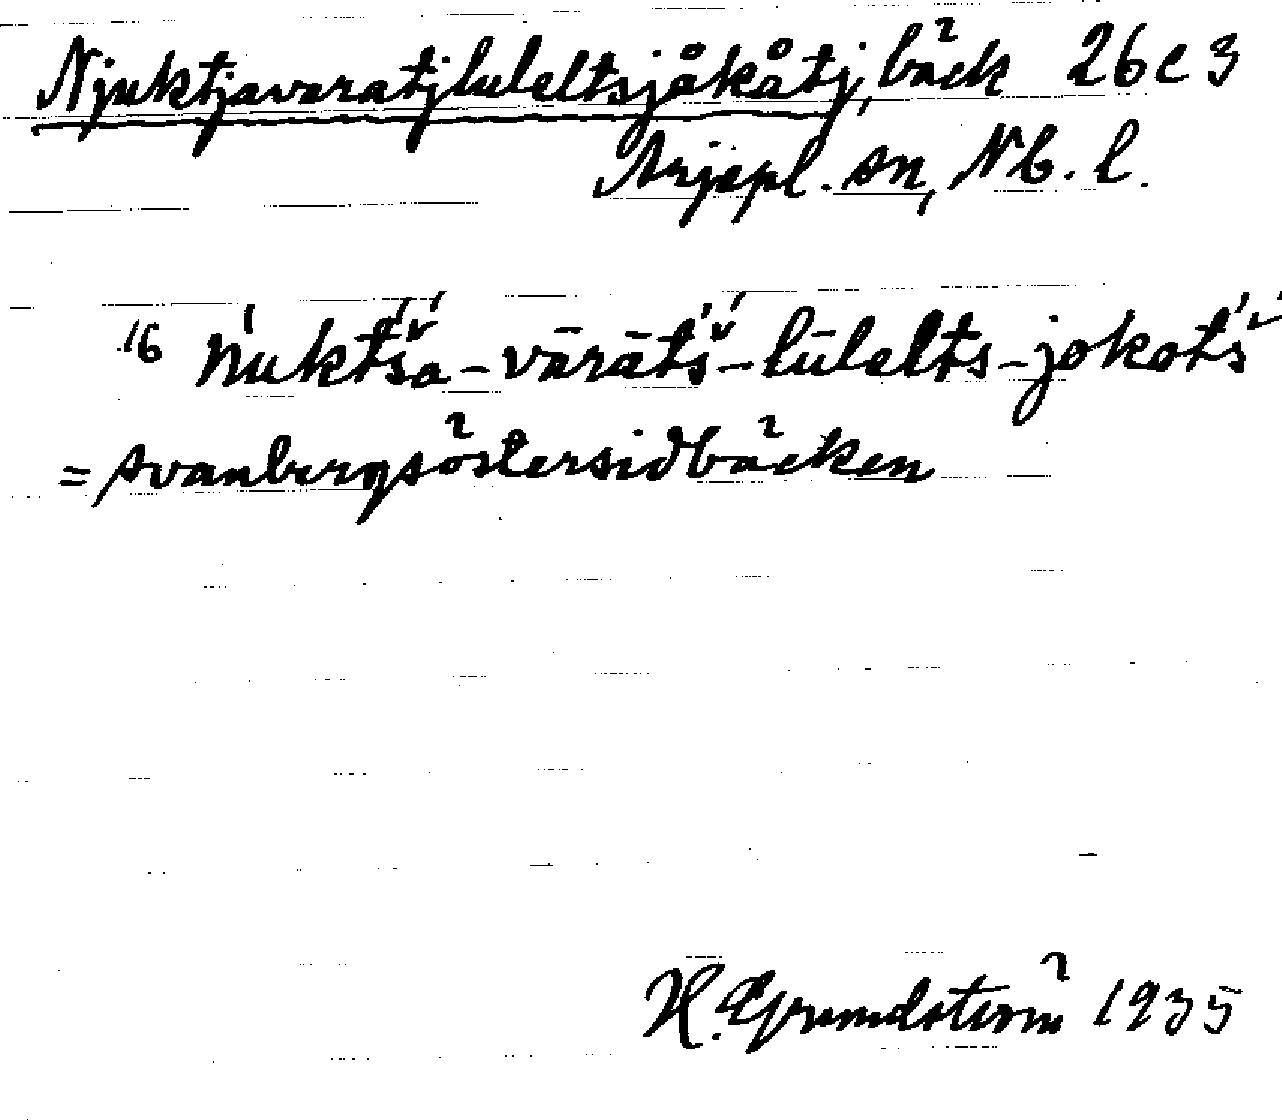 Njuktjavaratjluleltsjåkåtj, bäck 26 e 3
Arjepl. sn, Nb. l.
16 ńuktš́a-vārāts̆́-lūlelts-jokots̆́
= svanbergsöstersidbäcken
H. Grundström 1935